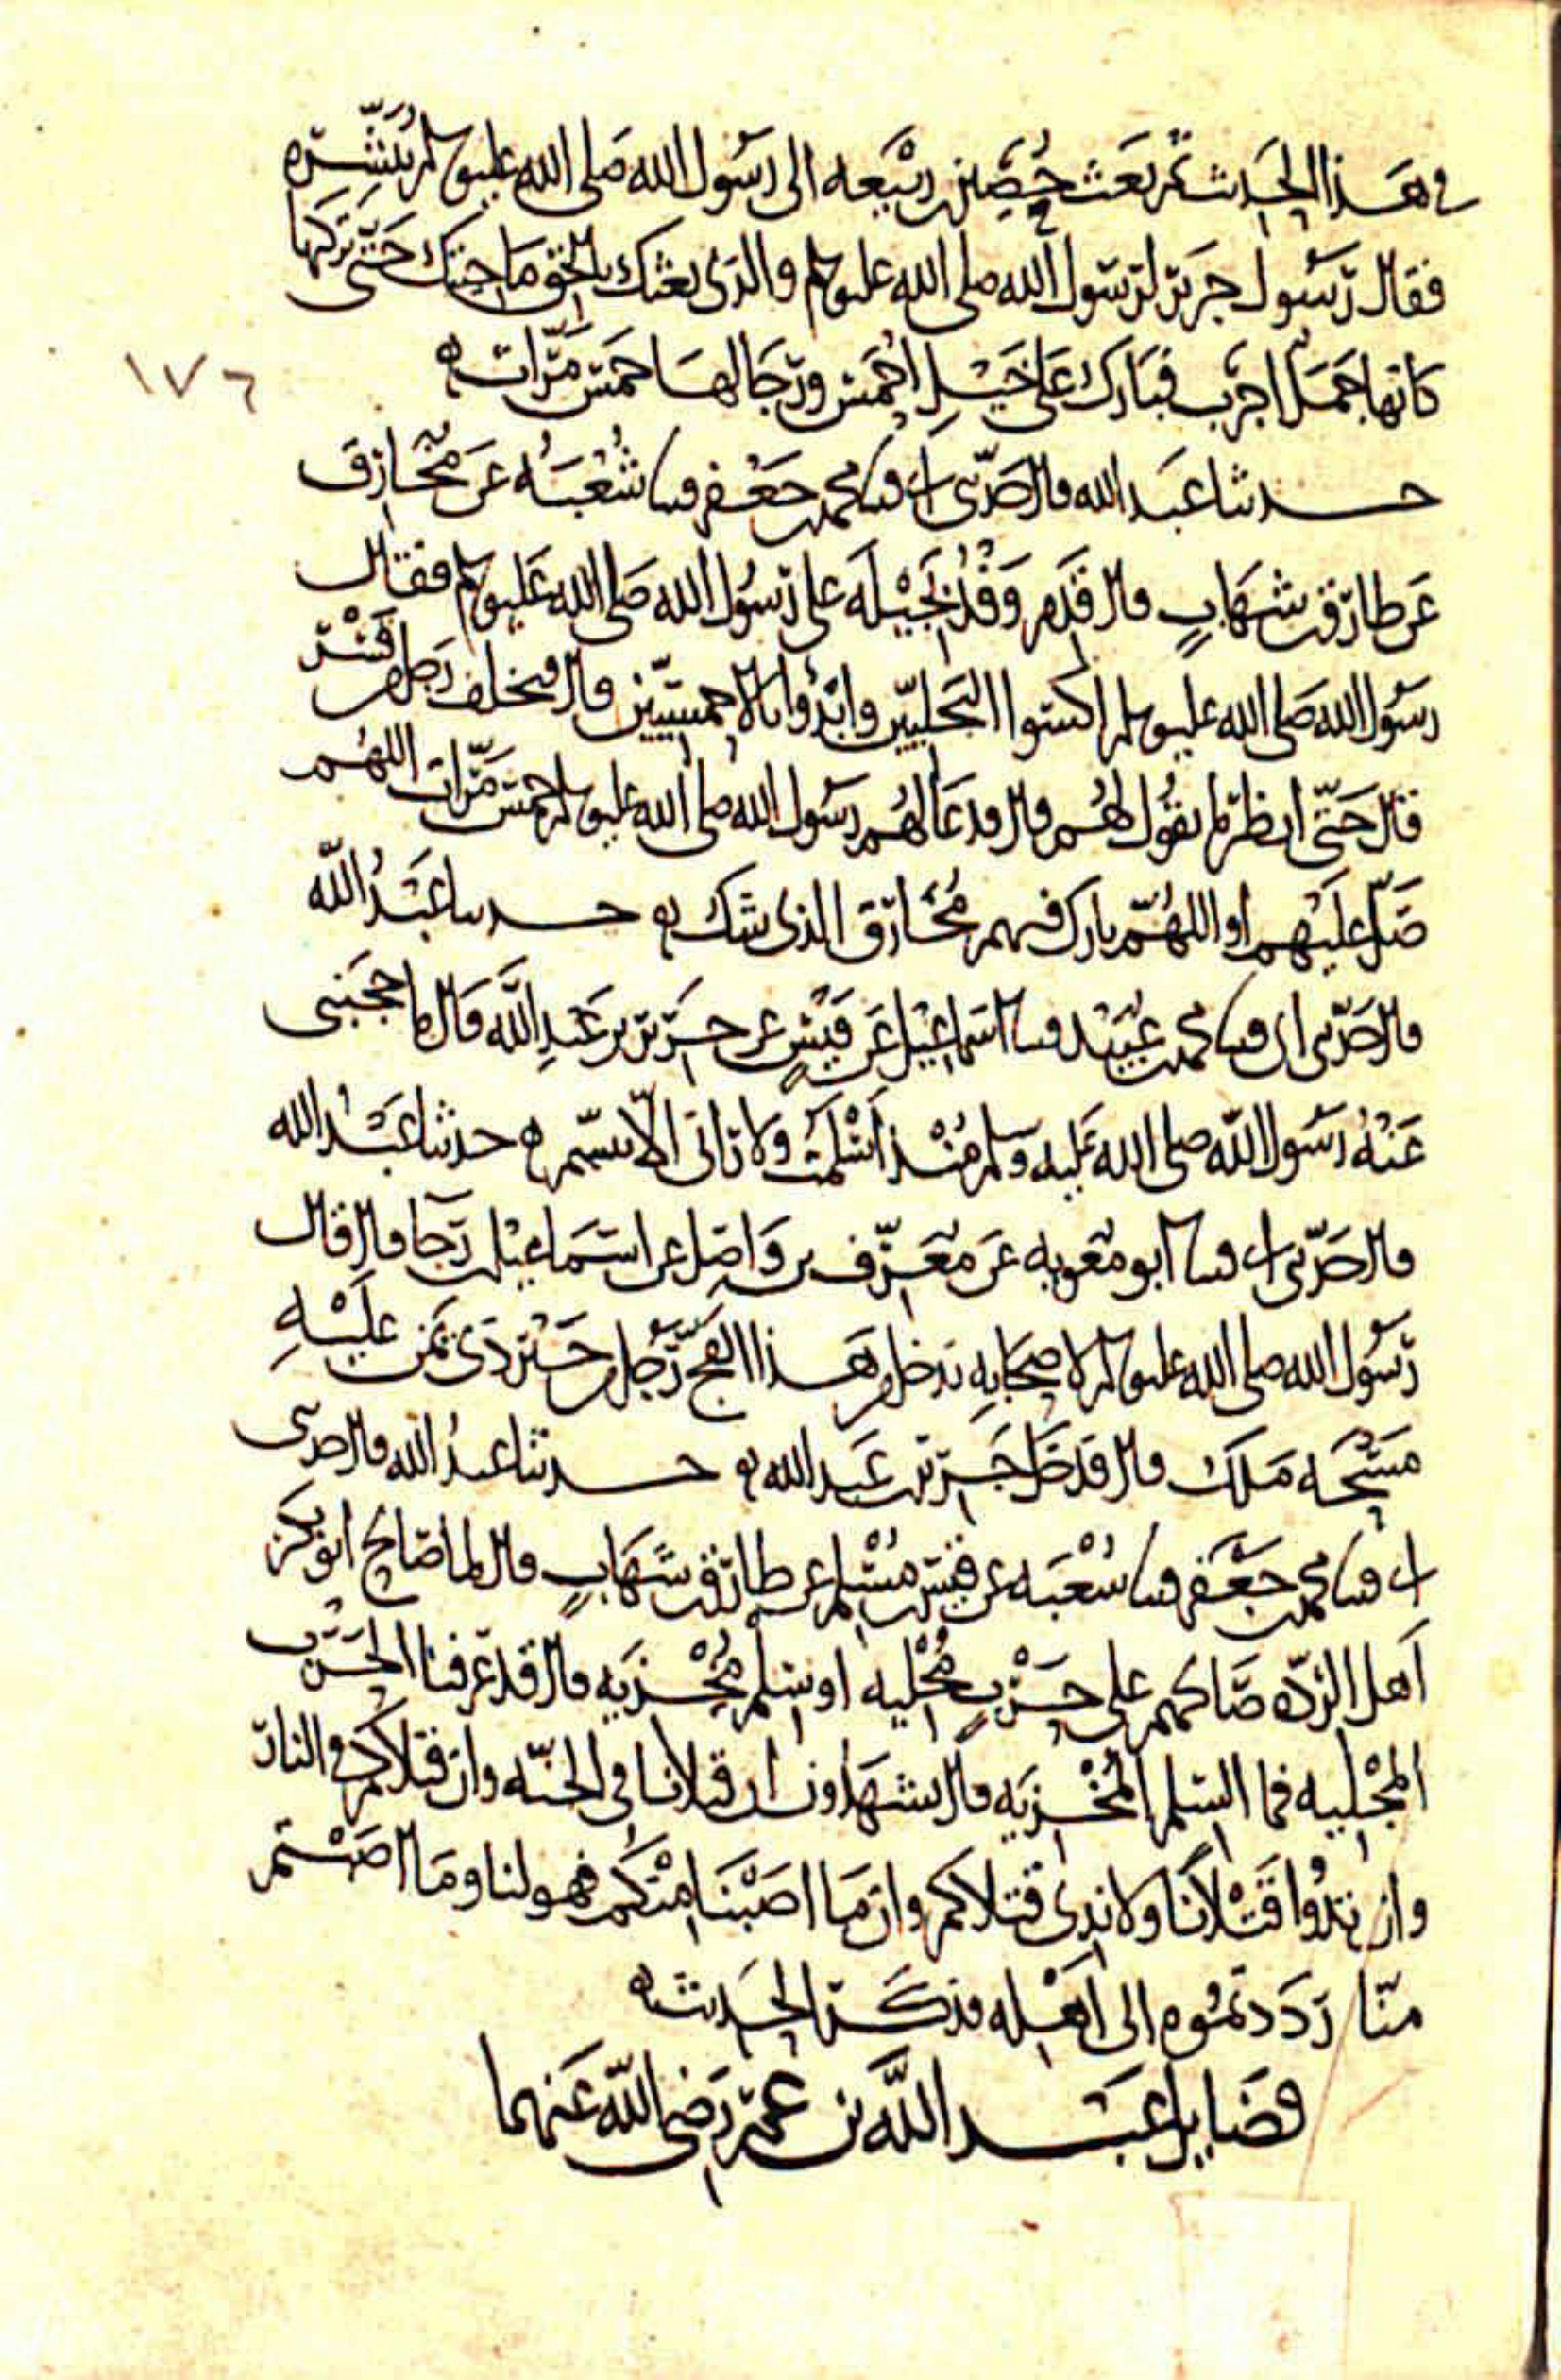 في هذا الحديث ثم بعث حصين بن ربيعه الى رسول الله صلى الله عليه وسلم يبشره
فقال رسول جرير لرسول الله صلى الله عليه وسلم والذي بعثك بالحق ما جئتك حتى تركتها
كانها جمل اجرب فبارك على خيل احمس ورجالها خمس مرات ه
١٧٦
حدثنا عبد الله قال حدثني ابي قثنا محمد بن جعفر قثنا شعبه عن مخارق
عن طارق بن شهاب قال قدم وفد بجيله على رسول الله صلى الله عليه وسلم فقال
رسول الله صلى الله عليه وسلم اكسوا البجليين وابدؤا بالاحمسيين قال فتخلف رجل من قسر
قال حتى انظر ما يقول لهم قال فدعا لهم رسول الله صلى الله عليه وسلم خمس مرات اللهم
صل عليهم او اللهم بارك فيهم مخارق الذي شك ه حدثنا عبد الله
قال حدثني ابي قثنا محمد بن عبيد قثنا اسماعيل عن قيس عن جرير بن عبد الله قال ما حجبني
عنه رسول الله صلى الله عليه وسلم منذ اسلمت ولا راني الا تبسم ه حدثنا عبد الله
قال حدثني ابي قثنا ابو معويه عن معرف بن واصل عن اسماعيل بن رجا قال قال
رسول الله صلى الله عليه وسلم لاصحابه يدخل من هذا الفج رجل من خير ذي يمن عليه
مسحه ملك قال فدخل جرير بن عبد الله ه حدثنا عبد الله قال حدثني
ابي قثنا محمد بن جعفر قثنا شعبه عن قيس بن مسلم عن طارق بن شهاب قال لما صالح ابو بكر
اهل الرده صالحهم على حرب مجليه او سلم مخزيه قال قد عرفنا الحرب
المجليه فما السلم المخزيه قال تشهدون ان قتلانا في الجنه وان قتلاكم في النار
وان تدوا قتلانا ولا ندي قتلاكم وان ما اصبنا منكم فهو لنا وما اصبتم
منا رددتموه الى اهله فذكر الحديث ه
فضايل عبد الله بن عمر رضي الله عنهما